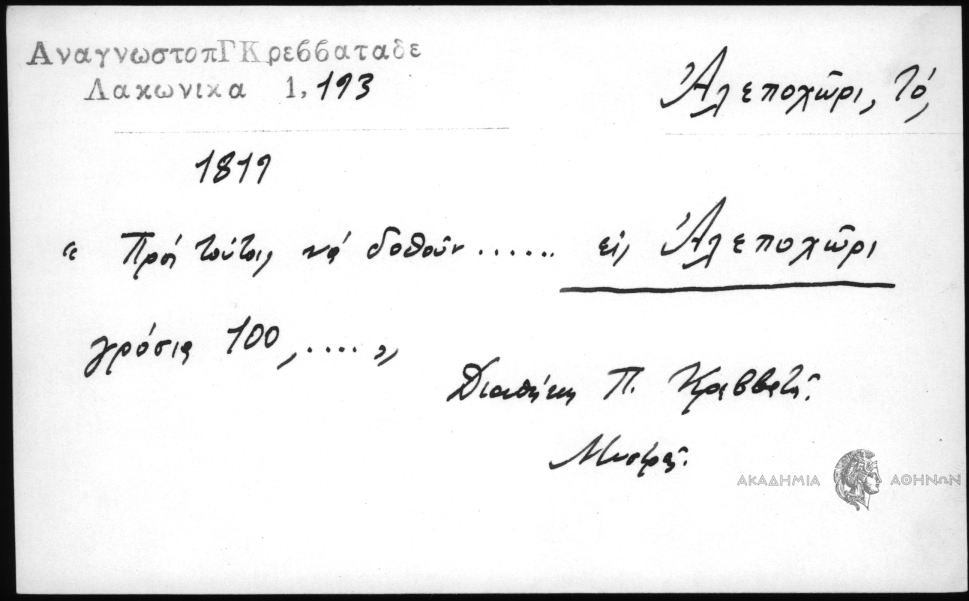 ΑναγνωστοπΓΚρεββαταδε
Λακωνικα 1, 193
Ἀλεποχῶρι, τό,
1819
“ Πρός τούτοις νά δοθοῦν ...... εἰς Ἀλεποχῶρι
γρόσια 100, ..... ,,
Διαθήκη Π. Κραββατᾶ.
Μυστρᾶ.
ΑΚΑΔΗΜΙΑ ΑΘΗΝΩΝ